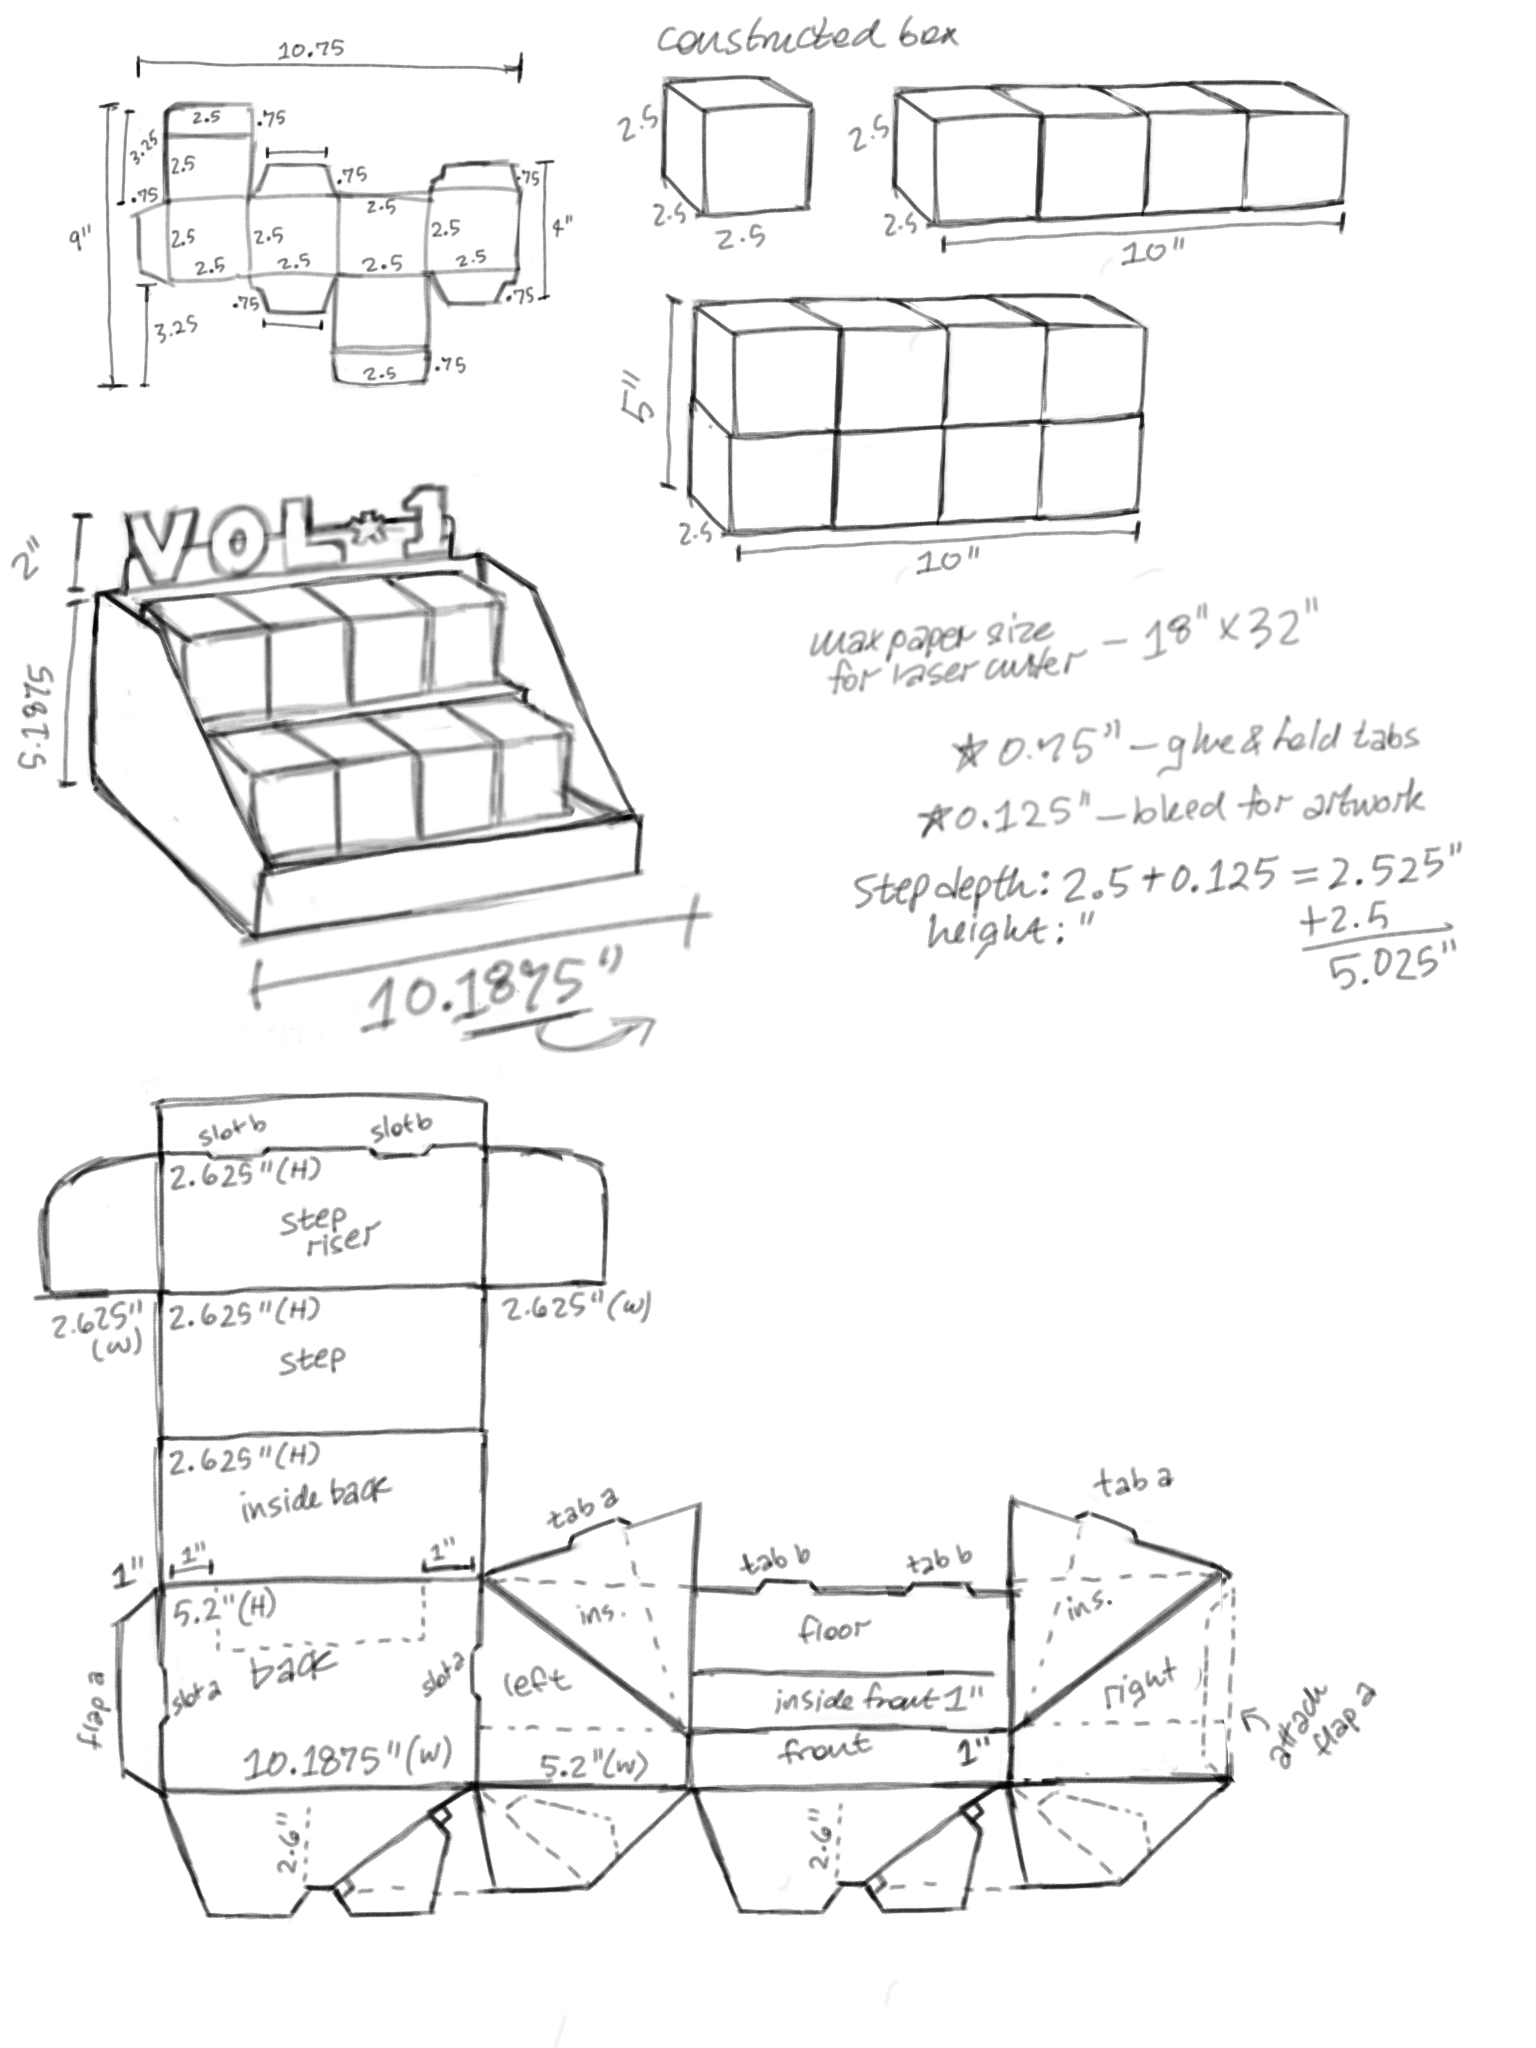 10.75
2.5
.75
3.25
2.5
.75
9"
.75
.75
2.5
2.5
2.5
2.5
4"
2.5
2.5
2.5
2.5
.75
.75
3.25
2.5
.75
constructed box
2.5
2.5
2.5
2.5
2.5
10"
5"
2.5
10"
VOL*1
2"
5.1875
10.1875"
max paper size
for laser cutter - 18" x 32"
★ 0.75" - glue & hold tabs
★ 0.125" - bleed for artwork
Step depth: 2.5 + 0.125 = 2.525"
height: "
+2.5
5.025"
slot b
slot b
2.625"(H)
step
riser
2.625"
(W)
2.625"(H)
2.625"(W)
step
2.625"(H)
inside back
1"
1"
1"
5.2"(H)
back
flap a
slot a
slot a
10.1875"(W)
tab a
ins.
left
5.2"(W)
tab b
tab b
floor
inside front 1"
front
1"
tab a
ins.
right
attach
flap a
2.6"
2.6"